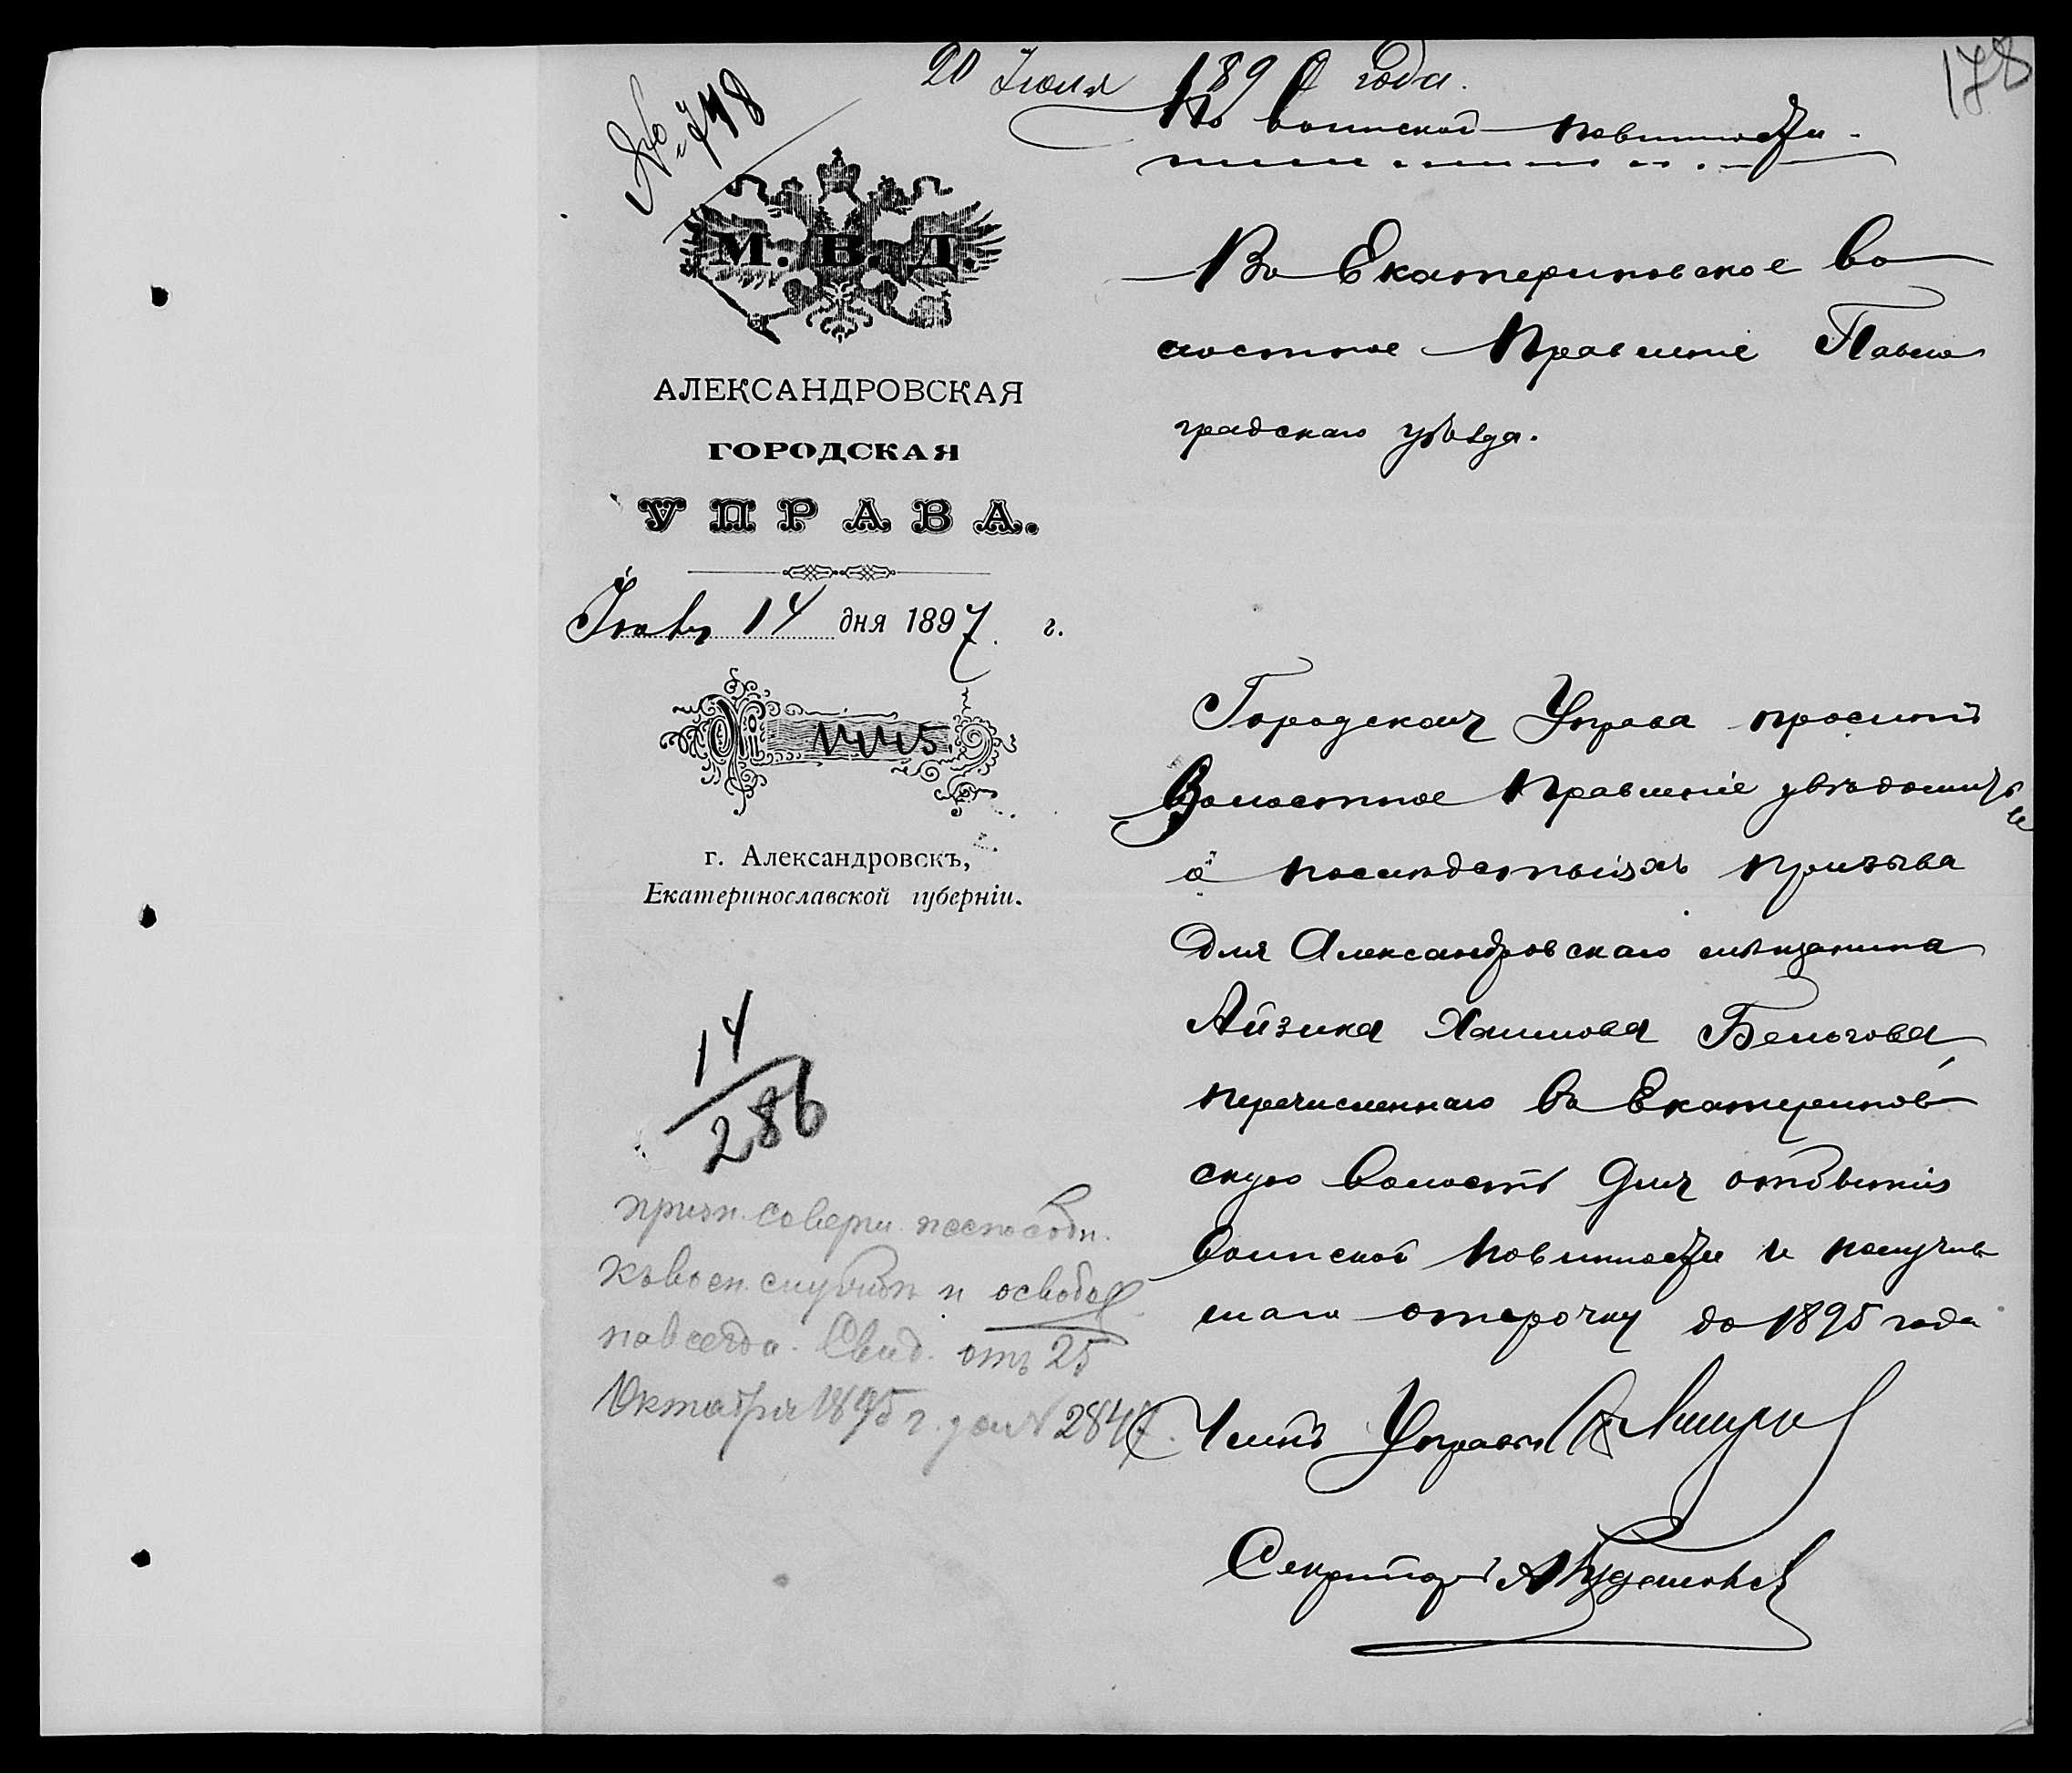 178
20 Июля 1890 года.
№ 748
По воинской повинности.
М. В. Д.
АЛЕКСАНДРОВСКАЯ
ГОРОДСКАЯ
УПРАВА.
14 дня 1897 г.
№
г. Александровскъ,
Екатеринославской губерніи.
14
286
призн. соверш. неспособн.
къ воен. службѣ и освобо
навсегда. Свид. отъ 25
Октября 1895 г. за № 2847
Въ Екатериновское Во
лостное Правленіе Павло
градскаго уѣзда.
Городская Управа проситъ
Волостное Правленіе увѣдомить ее
о послѣдствіяхъ призыва
для Александровскаго мѣщанина
Айзика Хаимова
перечисленнаго въ Екатеринов
скую волость для отбытія
воинской повинности и получив
шаго отсрочку до 1895 года
Членъ Управы
Секретарь